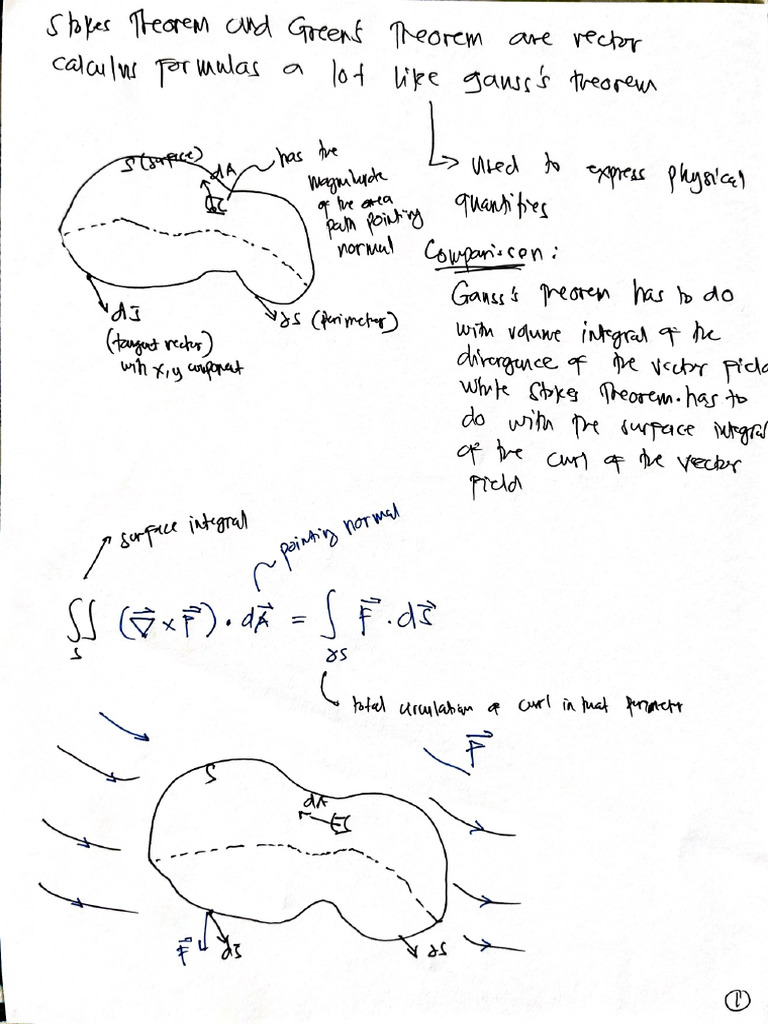 Stokes Theorem and Green's Theorem are vector
calculus formulas a lot like gauss's theorem
used to express physical
quantities
S (surface)
dA
has the
magnitude
of the area
path pointing
normal
dS
(tangent vector)
with x, y component
γS (perimeter)
Comparison:
Gauss's theorem has to do
with volume integral of the
divergence of the vector field
while Stokes Theorem has to
do with the surface integral
of the curl of the vector
field
surface integral
pointing normal
∬_S (∇⃗ × F⃗) · dA⃗ = ∫_γS F⃗ · dS⃗
total circulation of curl in that perimeter
F⃗
S
dA
F⃗
dS
γS
1